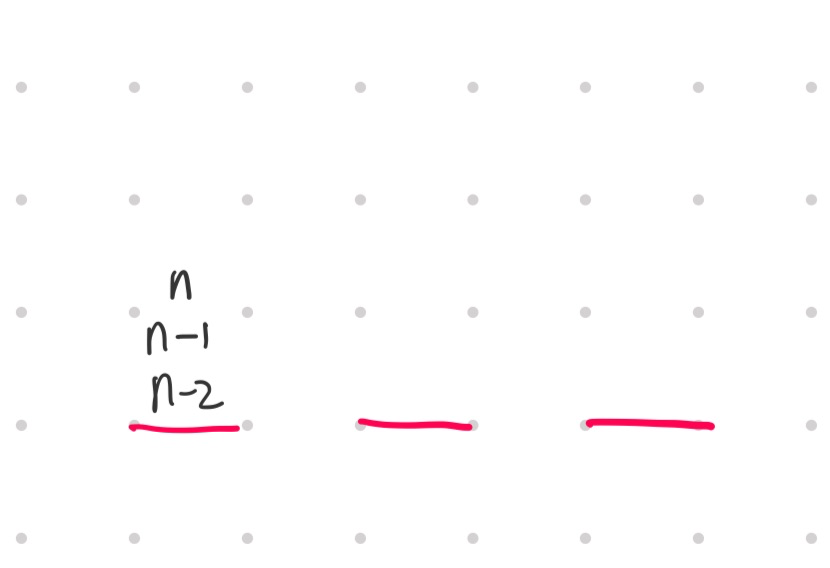 n
n-1
n-2